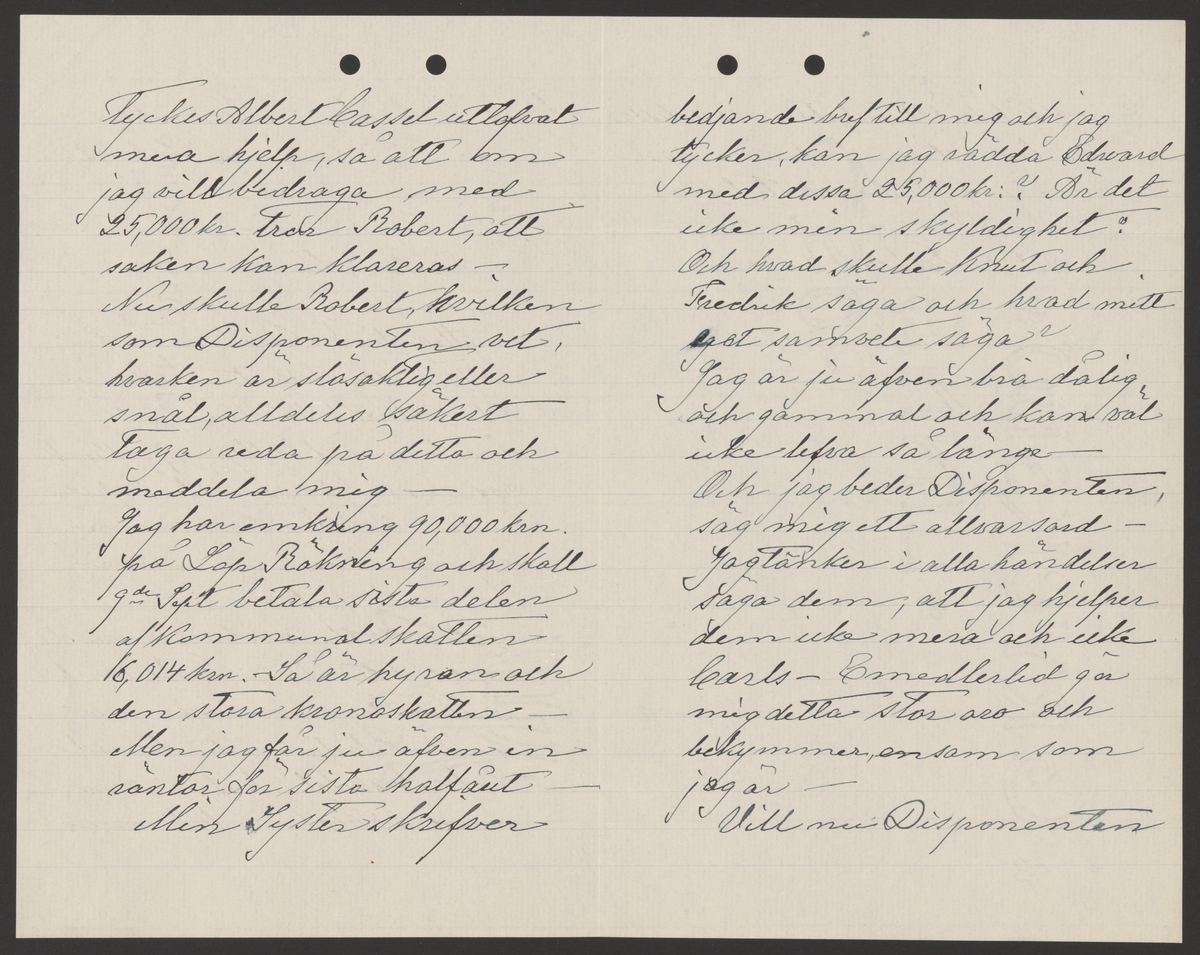 tyckes Albert Cassel utlofvat
mera hjelp, så att om
jag vill bidraga med
25,000 kr. tror Robert, att
saken kan klareras –
Nu skulle Robert, hvilken
som Disponenten vet,
hvarken är slösaktig eller
snål, alldeles säkert
taga reda på detta och
meddela mig –
Jag har omkring 90,000 krn.
på Löp Räkning och skall
9de Sept betala sista delen
af Kommunal skatten
16,014 krn. – Så är hyran och
den stora kronoskatten –
Men jag får ju äfven in
räntor för sista halfåret –
Min Syster skrifver
bedjande bref till mig och jag
tycker, kan jag rädda Edward
med dessa 25,000 kr:? Är det
icke min skyldighet?
Och hvad skulle Knut och
Fredrik säga och hvad mitt
eget samvete säga?
Jag är ju äfven bra dålig
och gammal och kan väl
icke lefva så länge –
Och jag beder Disponenten,
säg mig ett allvarsord –
Jag tänker i alla händelser
säga dem, att jag hjelper
dem icke mera och icke
Carls – Emedlertid gör
mig detta stor oro och
bekymmer, ensam som
jag är –
Vill nu Disponenten